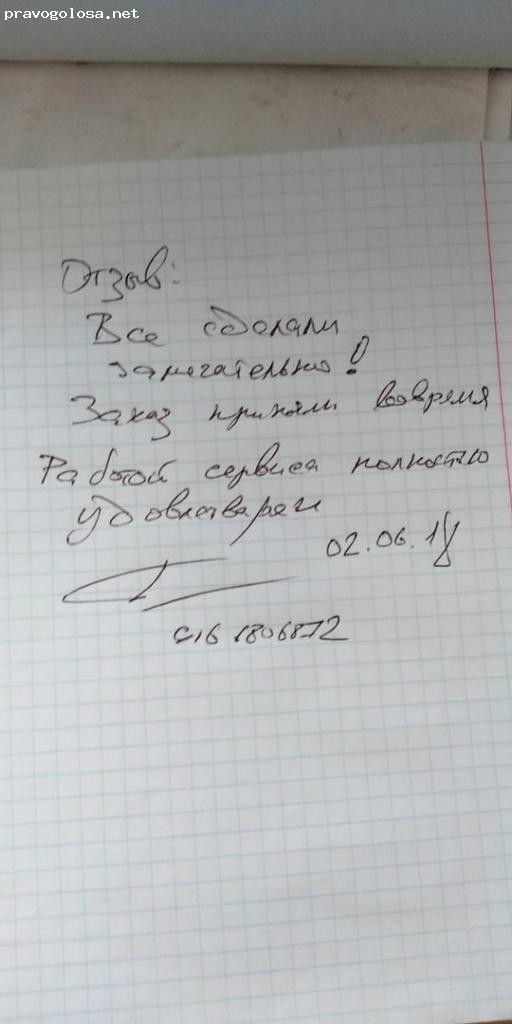 pravogolosa.net
Отзыв:
Все сделали
замечательно!
Заказ приняли вовремя
Работой сервиса полностью
удовлетворен
02.06.18
с16 1806872